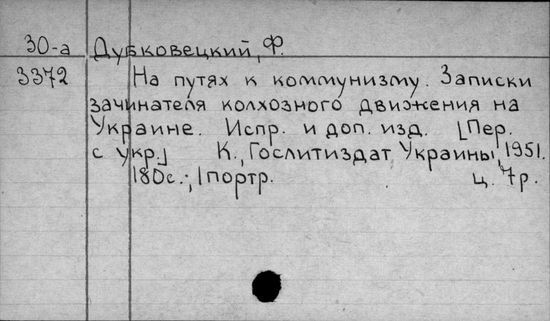 30-а Дубковецкий, Ф.
3372 На путях к коммунизму. Записки
зачинателя колхозного движения на
Украине. Испр. и доп. изд. [Пер.
с укр.] К., Гослитиздат Украины, 1951.
180с.; 1 портр. ц. 7р.